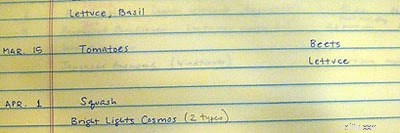 Lettuce, Basil
MAR. 15 Tomatoes Beets
Lettuce
APR. 1 Squash
Bright Lights Cosmos (2 types)